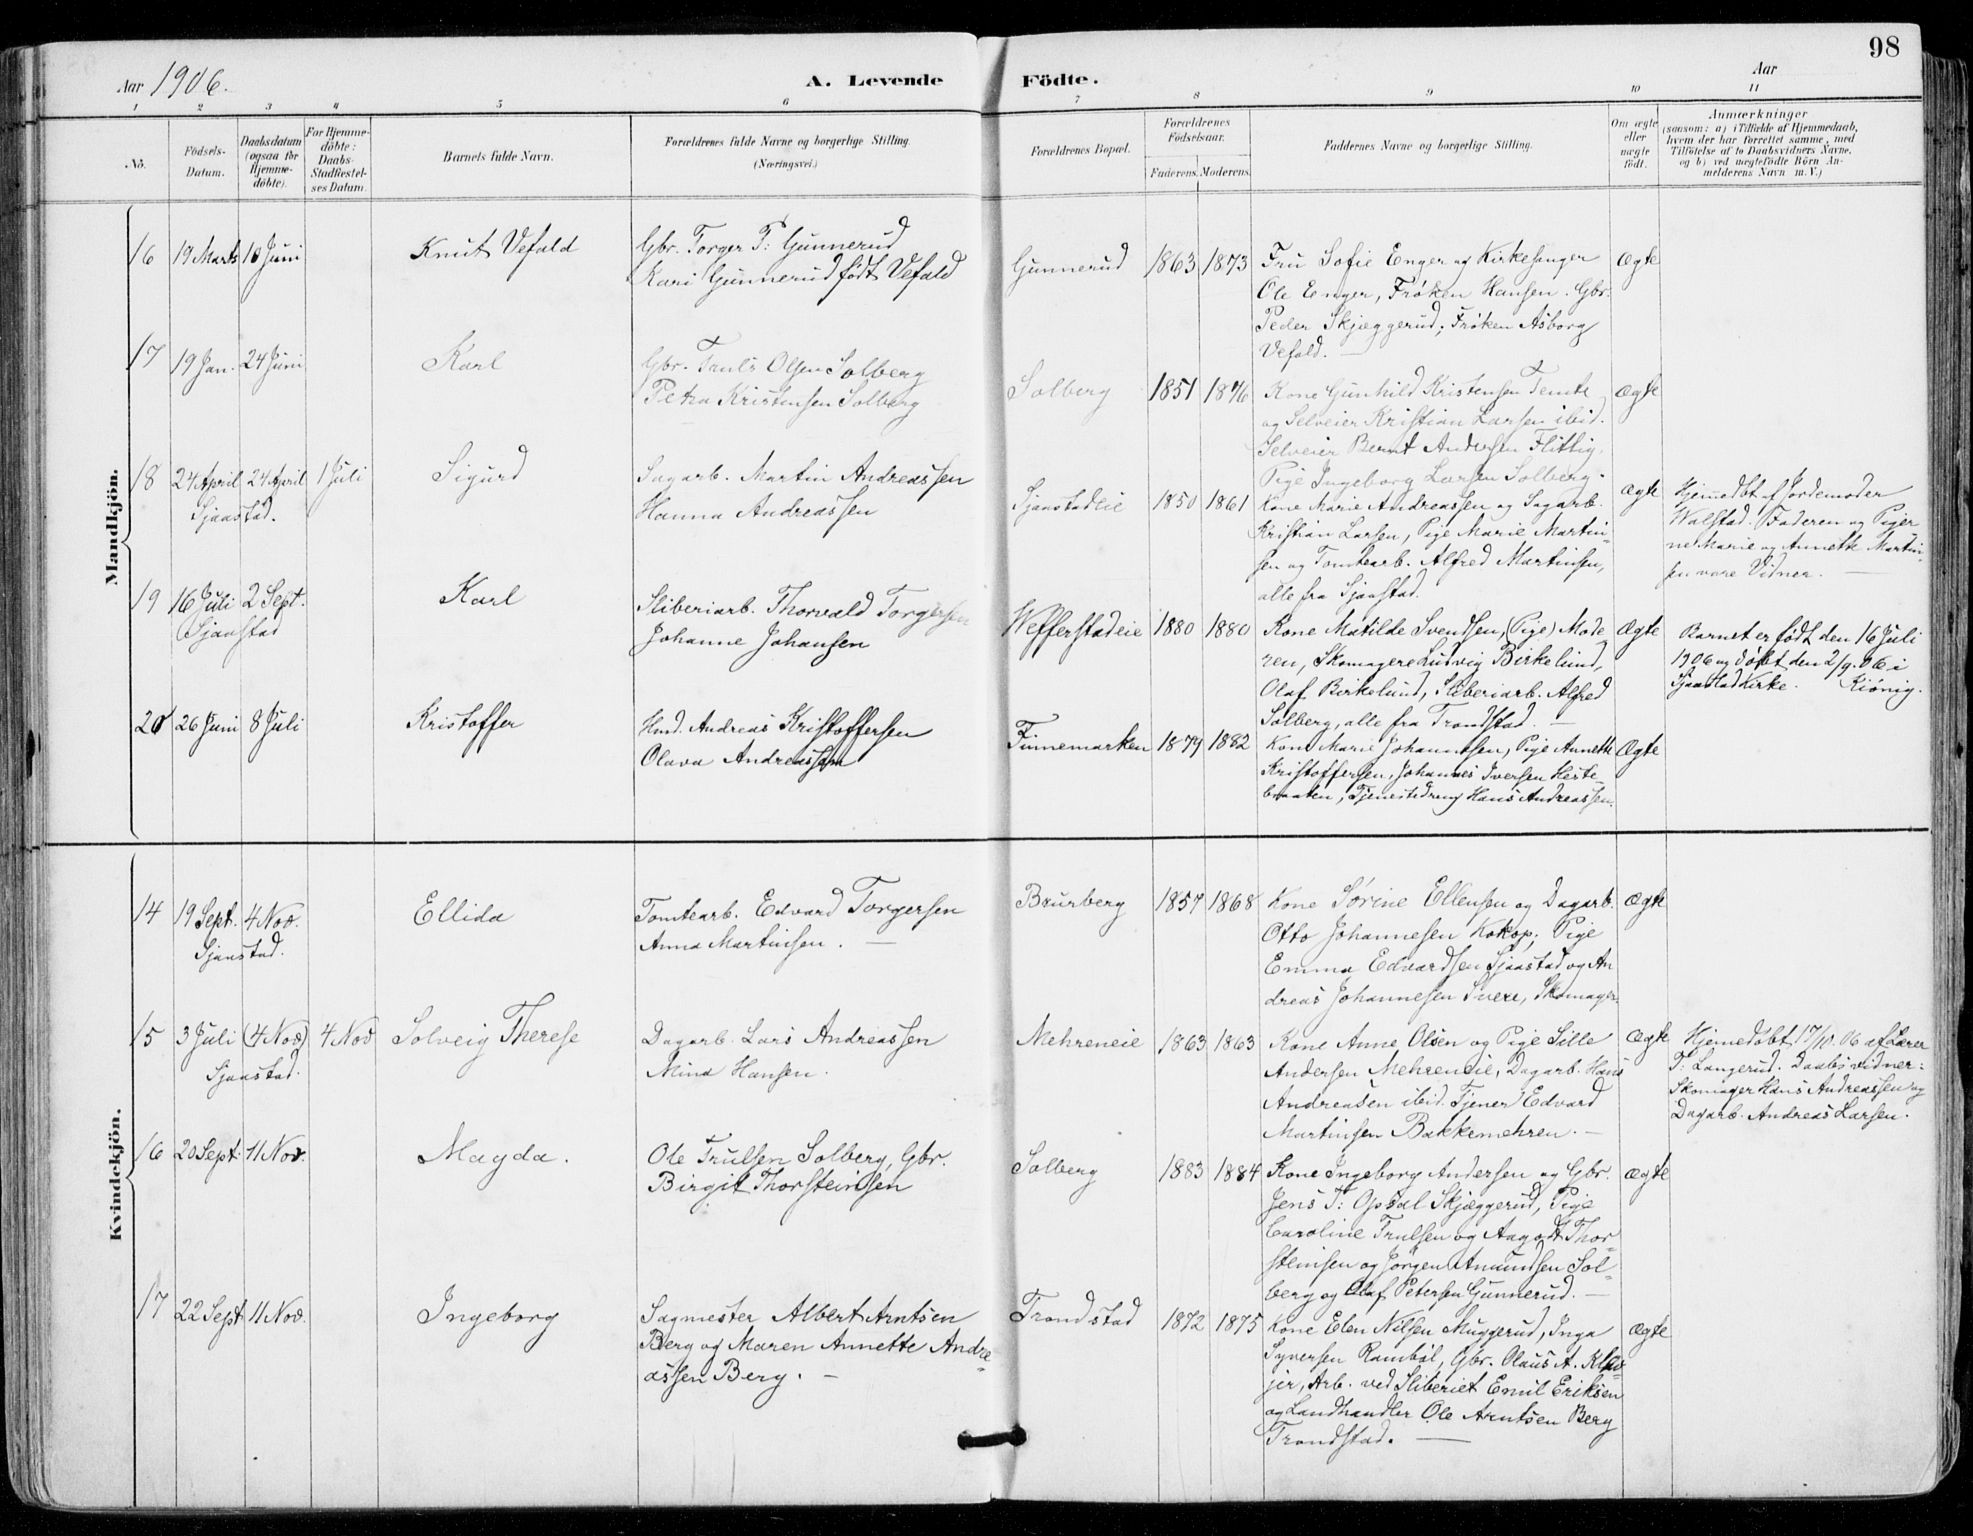 98
Aar 1906.
A. Levende Födte.
Aar
1 2 3 4 5 6 7 8 9 10 11
No.
Födsels-
Datum.
Daabsdatum
(ogsaa for
Hjemme-
döbte).
For Hjemme-
döbte:
Daabs-
Stadfæstel-
ses Datum.
Barnets fulde Navn.
Forældrenes fulde Navne og borgerlige Stilling.
(Næringsvei.)
Forældrenes Bopæl.
Forældrenes
Födselsaar.
Faderens. Moderens.
Faddernes Navne og borgerlige Stilling.
Om ægte
eller
uægte
födt.
Anmærkninger
(saasom: a) i Tilfælde af Hjemmedaab,
hvem der har forrettet samme, med
Tilföielse af to Daabsvidners Navne,
og b) ved uægtefödte Börn An-
melderens Navn m. V.)
Mandkjön.
16 19 Marts 10 Juni
Knut Vefald
Gbr. Torger P: Gunnerud
Kari Gunnerud født Vefald
Gunnerud 1863 1873
Fru Sofie Enger og Kirkesanger
Ole Enger, Frøken Hansen. Gbr.
Peder Skjæggerud, Frøken Asborg
Vefald. —
Ægte
17 19 Jan. 24 Juni
Karl
Gbr. Truls Olsen Solberg
Petra Kristensen Solberg
Solberg 1851 1876
Kone Gunhild Kristensen Temte
og Selveier Kristian Larsen ibid.
Selveier Bernt Andersen Flittig.
Pige Ingeborg Larsen Solberg.
Ægte
18 24 April 24 April 1 Juli
Sjaastad.
Sigurd
Sagarb. Martin Andreassen
Hanna Andreassen
Sjaastadeie 1850 1861
Kone Marie Andreassen og Sagarb.
Kristian Larsen, Pige Marie Martin-
sen og Tomtearb. Alfred Martinsen,
alle fra Sjaastad.
Ægte
Hjemmedbt af Jordemoder
Walstad. Faderen og Piger
ne Marie og Annette Martin-
sen vare Vidner. —
19 16 Juli 2 Sept.
Sjaastad
Karl
Sliberiarb. Thorvald Torgersen
Johanne Johansen
Wefferstadeie 1880 1880
Kone Matilde Svendsen, (Pige) Mode
ren, Skomagere Ludvig Birkelund,
Olaf Birkelund, Sliberiarb. Alfred
Solberg, alle fra Trondstad. —
Ægte
Barnet er født den 16 Juli
1906 og døbt den 2/9. 06 i
Sjaastad Kirke. Kiønig.
20 26 Juni 8 Juli
Kristoffer
Hmd. Andreas Kristoffersen
Olava Andreassen
Finnemarken 1879 1882
Kone Marie Johannesen, Pige Annette
Kristoffersen, Johannes Iversen Heste-
braaten, Tjenestedreng Hans Andreassen.
Ægte
Kvindekjön.
14 19 Sept. 4 Nov.
Sjaastad.
Ellida
Tomtearb. Edvard Torgersen
Anna Martinsen. —
Baurberg 1857 1868
Kone Sørine Ellensen og Dagarb.
Otto Johannesen Kokop; Pige
Emma Edvardsen Sjaastad og An
dreas Johannesen Svere, Skomager
Ægte
15 3 Juli (4 Nov) 4 Nov
Sjaastad.
Solveig Therese
Dagarb. Lars Andreassen
Mina Hansen.
Mehreneie 1863 1863
Kone Anne Olsen og Pige Sille
Andersen Mehreneie, Dagarb. Hans
Andreasen ibid. Tjener Edvard
Martinsen Bakkemehren. —
Ægte
Hjemedøbt 17/10. 06 af Lærer
T: Langerud. Daabsvidner:
Skomager Hans Andreassen og
Dagarb. Andreas Larsen.
16 20 Sept. 11 Nov.
Magda.
Ole Trulsen Solberg, Gbr.
Birgit Thorsteinsen
Solberg 1883 1884
Kone Ingeborg Andersen og Gbr.
Jens T: Opdal Skjæggerud, Pige
Caroline Trulsen og Aagodt Thor-
steinsen og Jørgen Amundsen Sol-
berg og Olaf Petersen Gunnerud. —
Ægte
17 22 Sept 11 Nov.
Ingeborg
Sagmester Albert Arntsen
Berg og Maren Annette Andre-
assen Berg. —
Trondstad 1872 1875
Kone Elen Nilsen Muggerud, Inga
Syversen Rambøl, Gbr. Olaus A.
jer, Arb. ved Sliberiet Emil Eriksen
og Landhandler Ole Arntsen Berg
Trondstad. —
Ægte